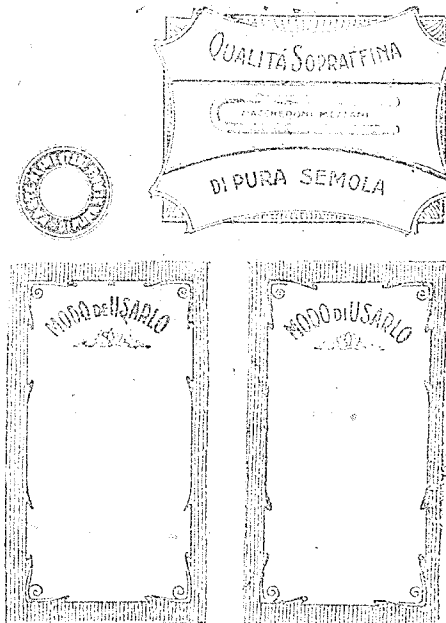 QUALITÁ SOPRAFFINA
MACCHERONI MEZZANI
DI PURA SEMOLA
MODO DE USARLO
MODO DI USARLO